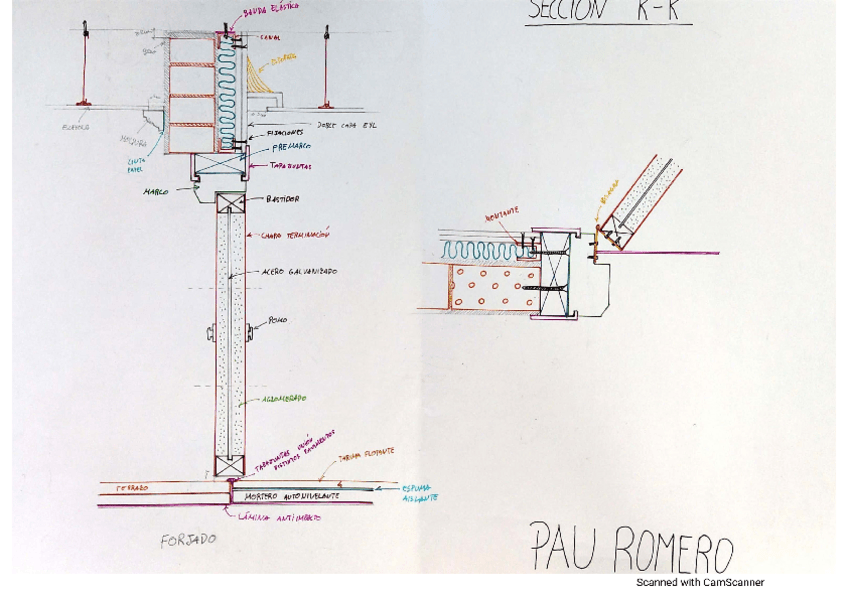 SECCIÓN K-K
BANDA ELÁSTICA
CANAL
DOBLE CAPA EYL
FIJACIONES
PREMARCO
TAPAJUNTAS
MOLDURA
CINTA
PAPEL
MARCO
BASTIDOR
CHAPA TERMINACIÓN
ACERO GALVANIZADO
POMO
AGLOMERADO
TAPAJUNTAS UNIÓN
DISTINTOS PAVIMENTOS
TARIMA FLOTANTE
TERRAZO
MORTERO AUTONIVELANTE
ESPUMA
AISLANTE
LÁMINA ANTIIMPACTO
FORJADO
MONTANTE
BISAGRA
PAU ROMERO
Scanned with CamScanner